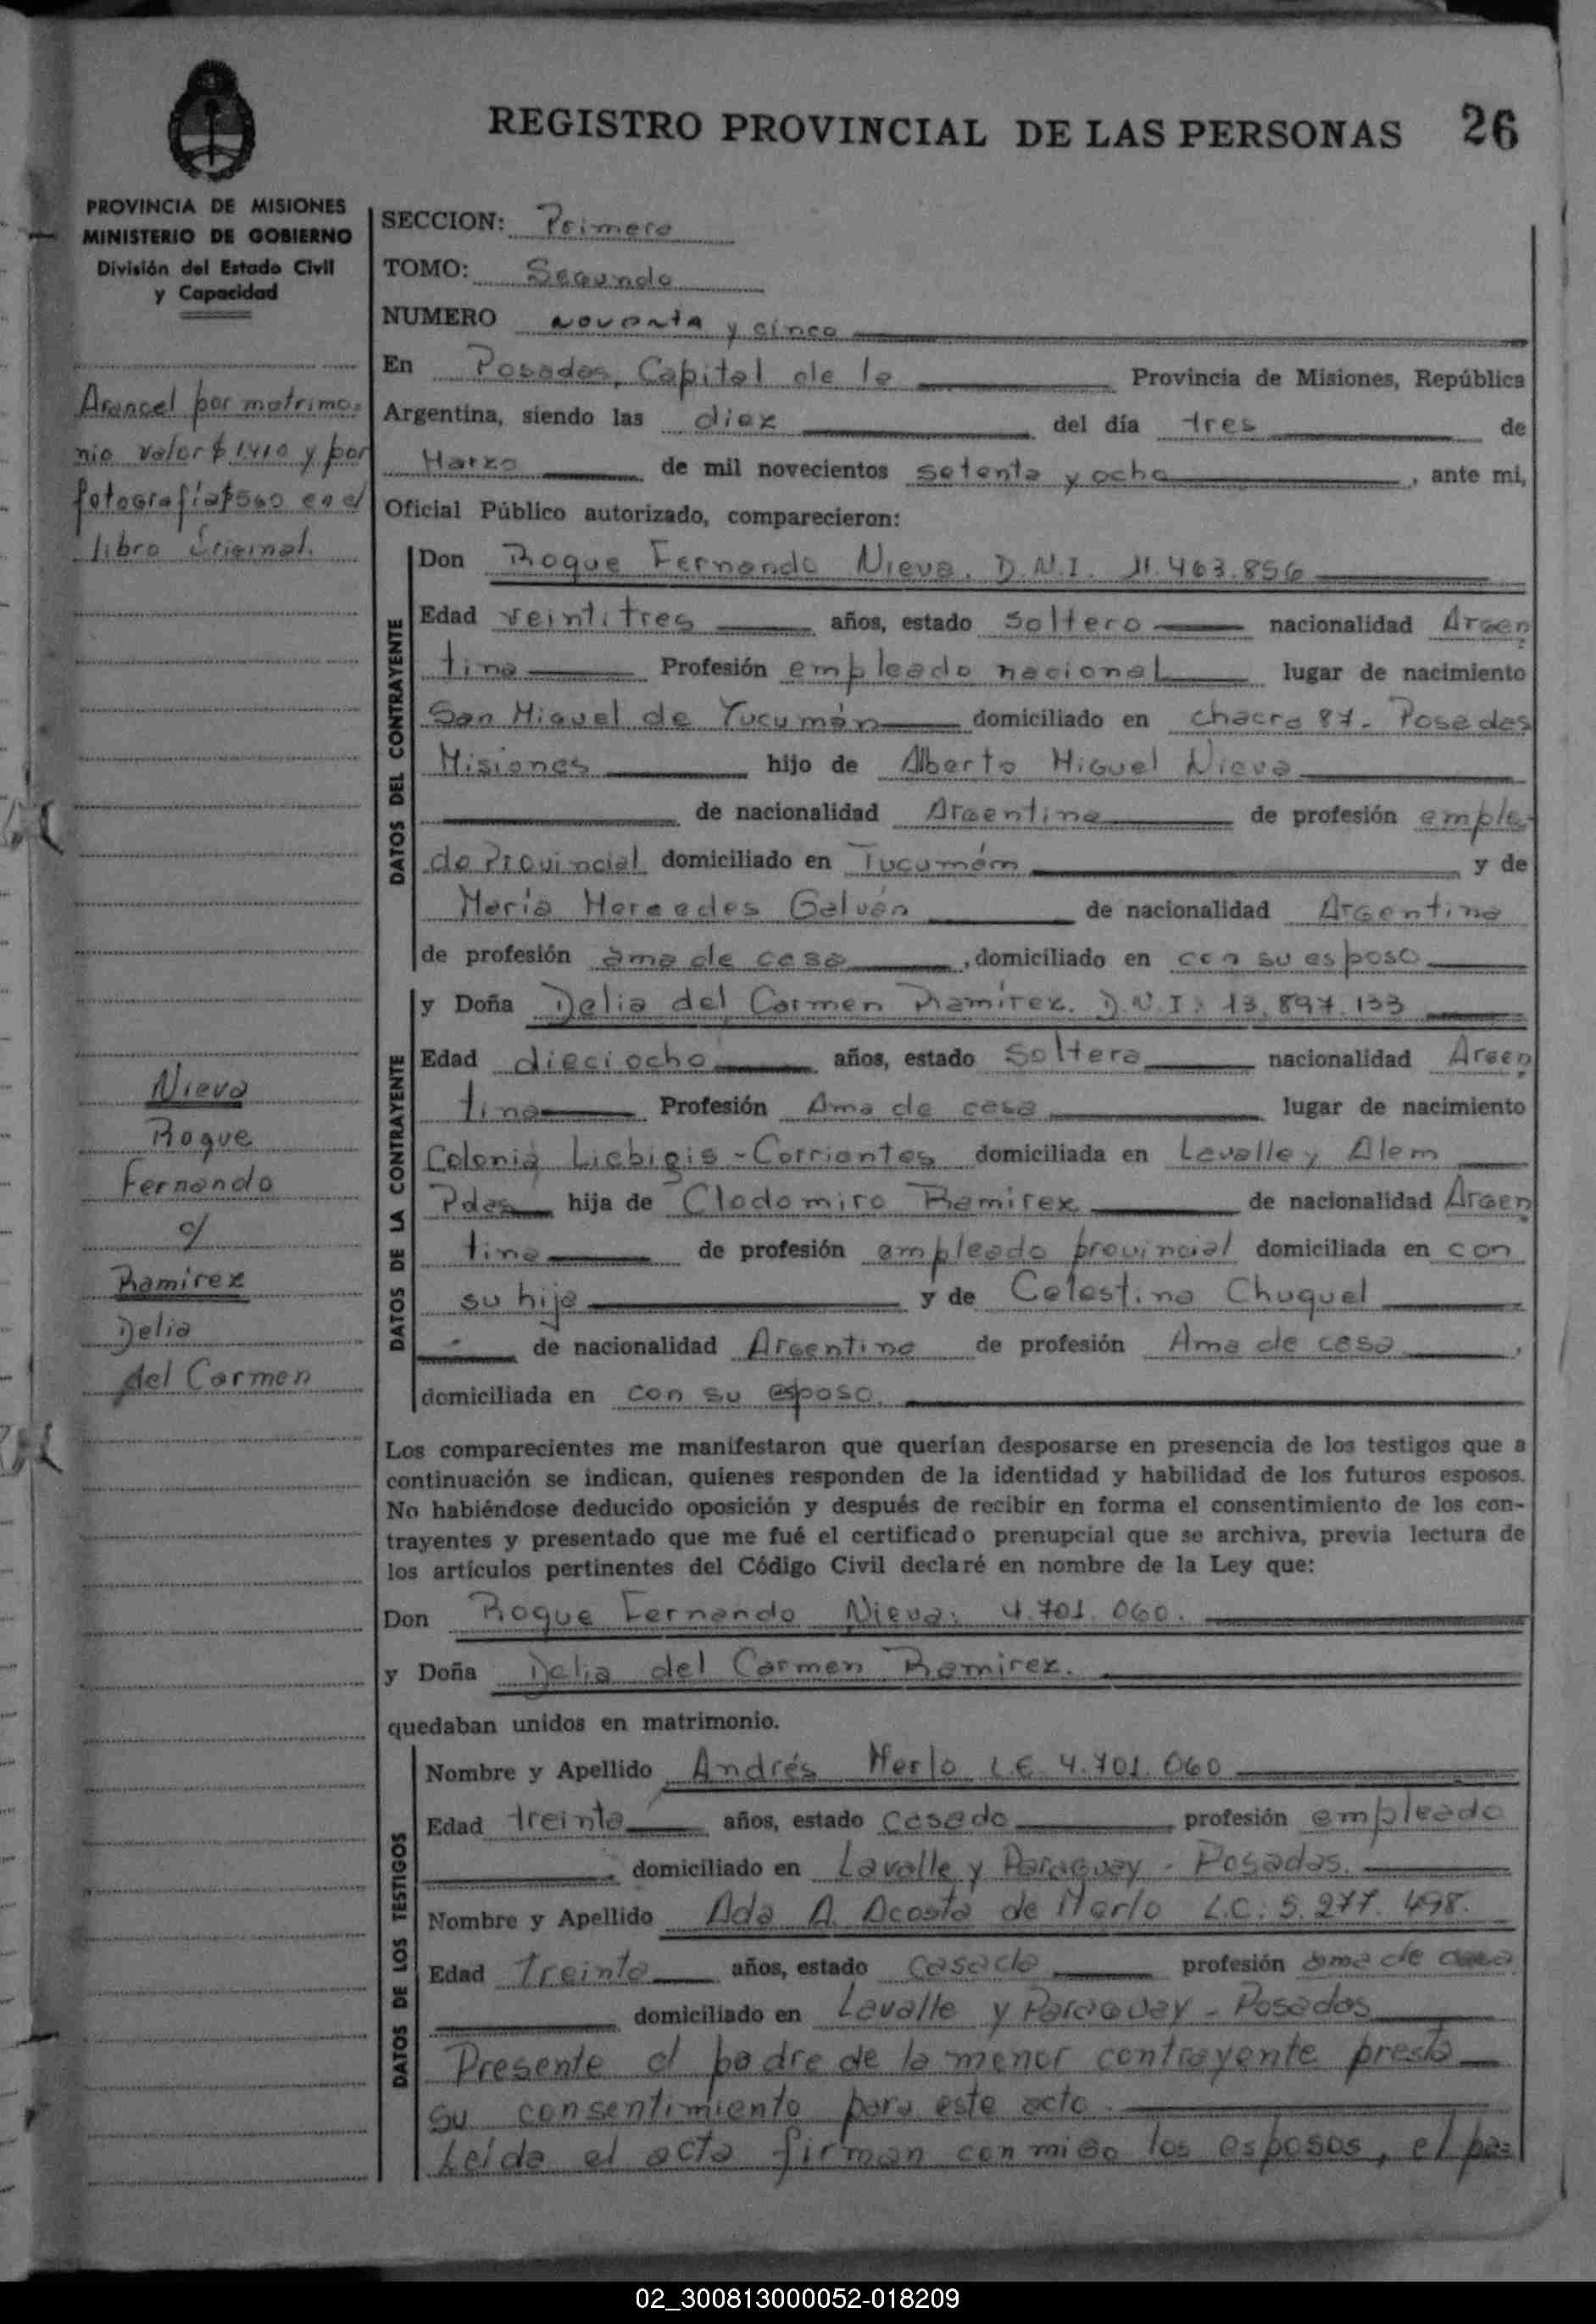 REGISTRO PROVINCIAL DE LAS PERSONAS 26
PROVINCIA DE MISIONES
MINISTERIO DE GOBIERNO
División del Estado Civil
y Capacidad
Arancel por matrimo-
nio valor $ 1410 y por
fotografía $560 en el
libro Original.
Nieva
Roque
Fernando
c/
Ramirez
Delia
del Carmen
SECCION: Primera
TOMO: Segundo
NUMERO noventa y cinco
En Posadas, Capital de la Provincia de Misiones, República
Argentina, siendo las diez del día tres de
Marzo de mil novecientos setenta y ocho, ante mi,
Oficial Público autorizado, comparecieron:
DATOS DEL CONTRAYENTE
Don Roque Fernando Nieva. D.N.I. 11.463.856
Edad veintitres años, estado soltero nacionalidad Argen
tina Profesión empleado nacional lugar de nacimiento
San Miguel de Tucumán domiciliado en chacra 87. Posadas
Misiones hijo de Alberto Miguel Nieva
de nacionalidad Argentina de profesión emplea-
do Provincial domiciliado en Tucumám y de
María Mercedes Galván de nacionalidad Argentina
de profesión ama de casa, domiciliado en con su esposo
DATOS DE LA CONTRAYENTE
y Doña Delia del Carmen Ramirez. D.N.I: 13.897.133
Edad dieciocho años, estado Soltera nacionalidad Argen
tina Profesión Ama de casa lugar de nacimiento
Colonia Liebigis - Corrientes domiciliada en Lavalle y Alem
Pdas hija de Clodomiro Ramirez de nacionalidad Argen
tina de profesión empleado provincial domiciliada en con
su hija y de Celestina Chuquel
de nacionalidad Argentina de profesión Ama de casa,
domiciliada en con su esposo.
Los comparecientes me manifestaron que querían desposarse en presencia de los testigos que a
continuación se indican, quienes responden de la identidad y habilidad de los futuros esposos.
No habiéndose deducido oposición y después de recibir en forma el consentimiento de los con-
trayentes y presentado que me fué el certificado prenupcial que se archiva, previa lectura de
los artículos pertinentes del Código Civil declaré en nombre de la Ley que:
Don Roque Fernando Nieva. 4.701.060.
y Doña Delia del Carmen Ramirez.
quedaban unidos en matrimonio.
DATOS DE LOS TESTIGOS
Nombre y Apellido Andrés Merlo L.E. 4.701.060
Edad treinta años, estado casado profesión empleado
domiciliado en Lavalle y Paraguay - Posadas.
Nombre y Apellido Ada A. Acosta de Merlo L.C: 5.277.498.
Edad Treinta años, estado casada profesión ama de casa
domiciliado en Lavalle y Paraguay - Posadas
Presente el padre de la menor contrayente presta
su consentimiento para este acto.
Leída el acta firman conmigo los esposos, el pa=
02_300813000052-018209